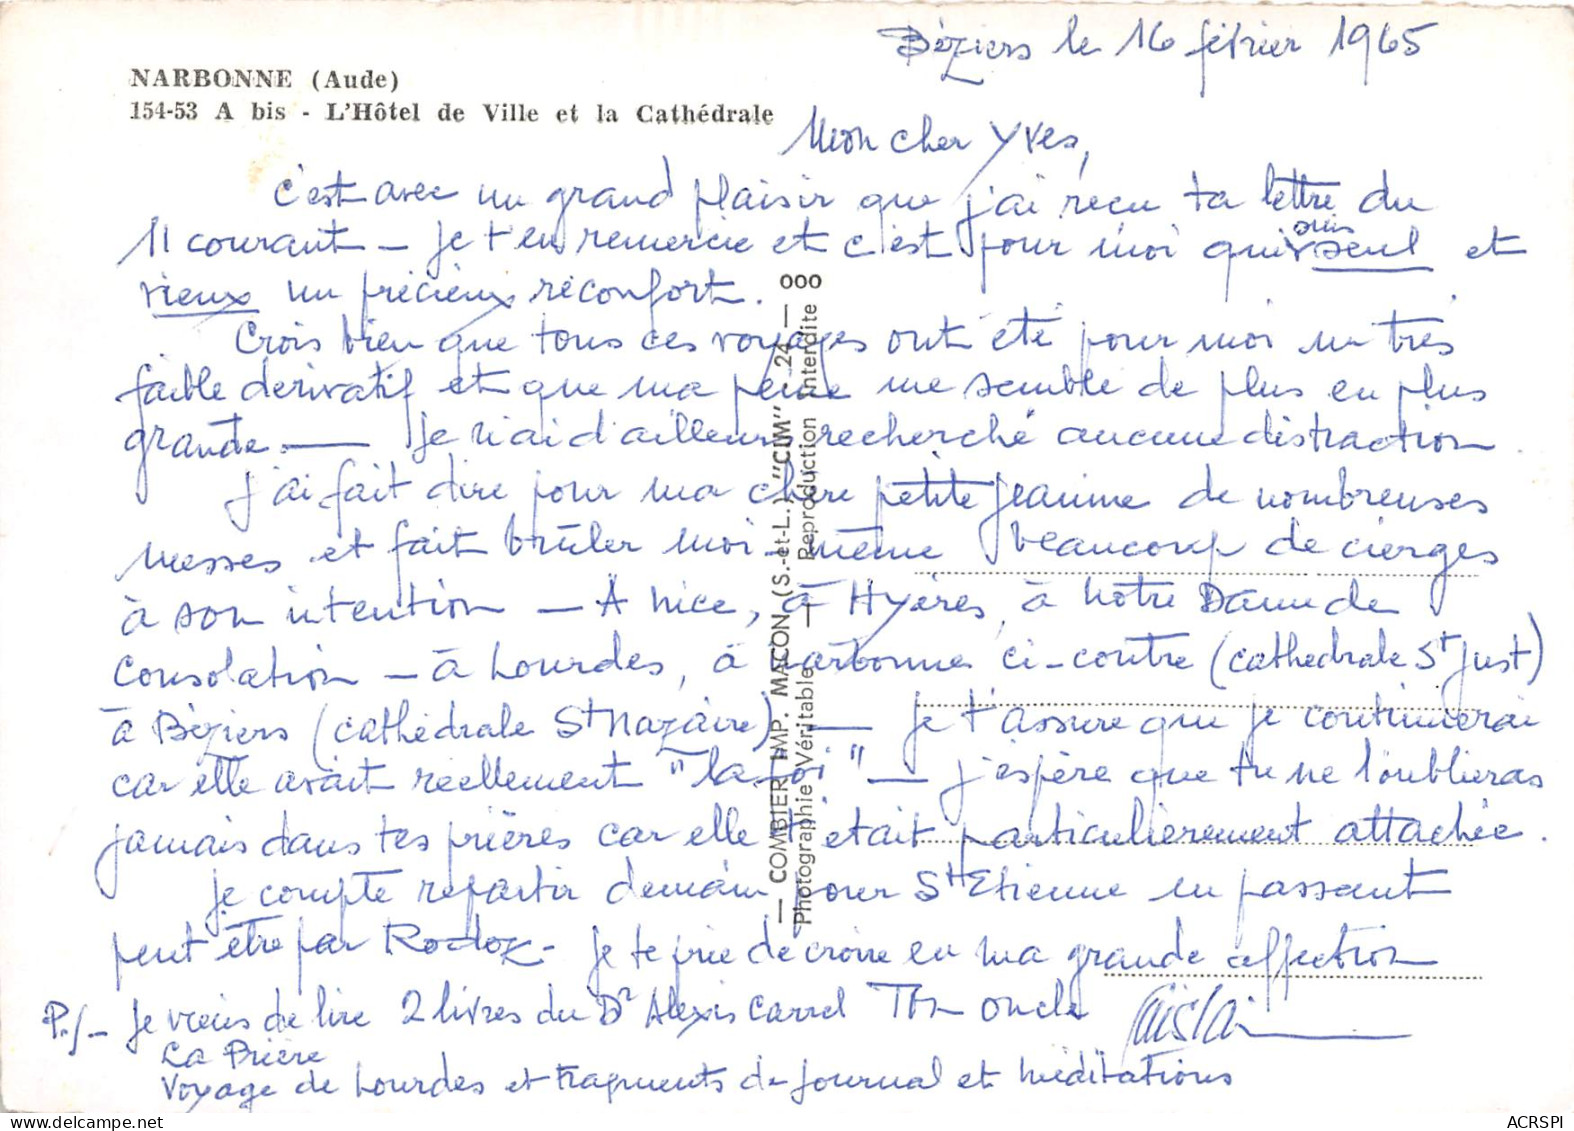 Béziers le 16 février 1965
NARBONNE (Aude)
154-53 A bis - L'Hôtel de Ville et la Cathédrale
Mon cher Yves,
c'est avec un grand plaisir que j'ai reçu ta lettre du
11 courant - je t'en remercie et c'est pour moi qui suis seul et
vieux un précieux réconfort.
Crois bien que tous ces voyages ont été pour moi un très
faible dérivatif et que ma peine me semble de plus en plus
grande. — Je n'ai d'ailleurs recherché aucune distraction
J'ai fait dire pour ma chère petite Jeanine de nombreuses
messes et fait brûler moi-même beaucoup de cierges
à son intention — A Nice, à Hyères, à Notre Dame de
Consolation - à Lourdes, à Narbonne ci-contre (cathédrale St Just)
à Béziers (cathédrale St Nazaire) — je t'assure que je continuerai
car elle avait réellement "la foi" — j'espère que tu ne l'oublieras
jamais dans tes prières car elle t'était particulièrement attachée.
Je compte repartir demain pour St Etienne en passant
peut être par Rodez - je te prie de croire en ma grande affection
Ton oncle
P.S- Je viens de lire 2 livres du Dr Alexis Carrel
La Prière
Voyage de Lourdes et fragments de journal et méditations
— COMBIER IMP. MACON (S.-et-L.) "CIM" C-24 — ooo
Photographie Véritable — Reproduction Interdite
ACRSPI